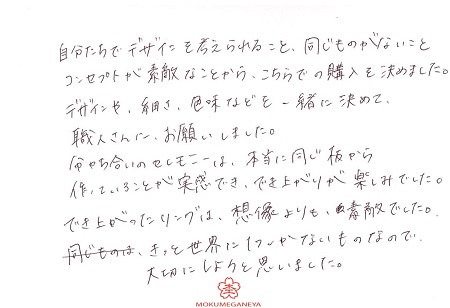 自分たちでデザインを考えられること、同じものがないこと
コンセプトが素敵なことから、こちらでの購入を決めました。
デザインや、細さ、色味などを一緒に決めて、
職人さんに、お願いしました。
分かち合いのセレモニーは、本当に同じ板から
作っていることが実感でき、でき上がりが楽しみでした。
でき上がったリングは、想像よりも、素敵でした。
同じものは、きっと世界に1つしかないものなので、
大切にしようと思いました。
MOKUMEGANEYA